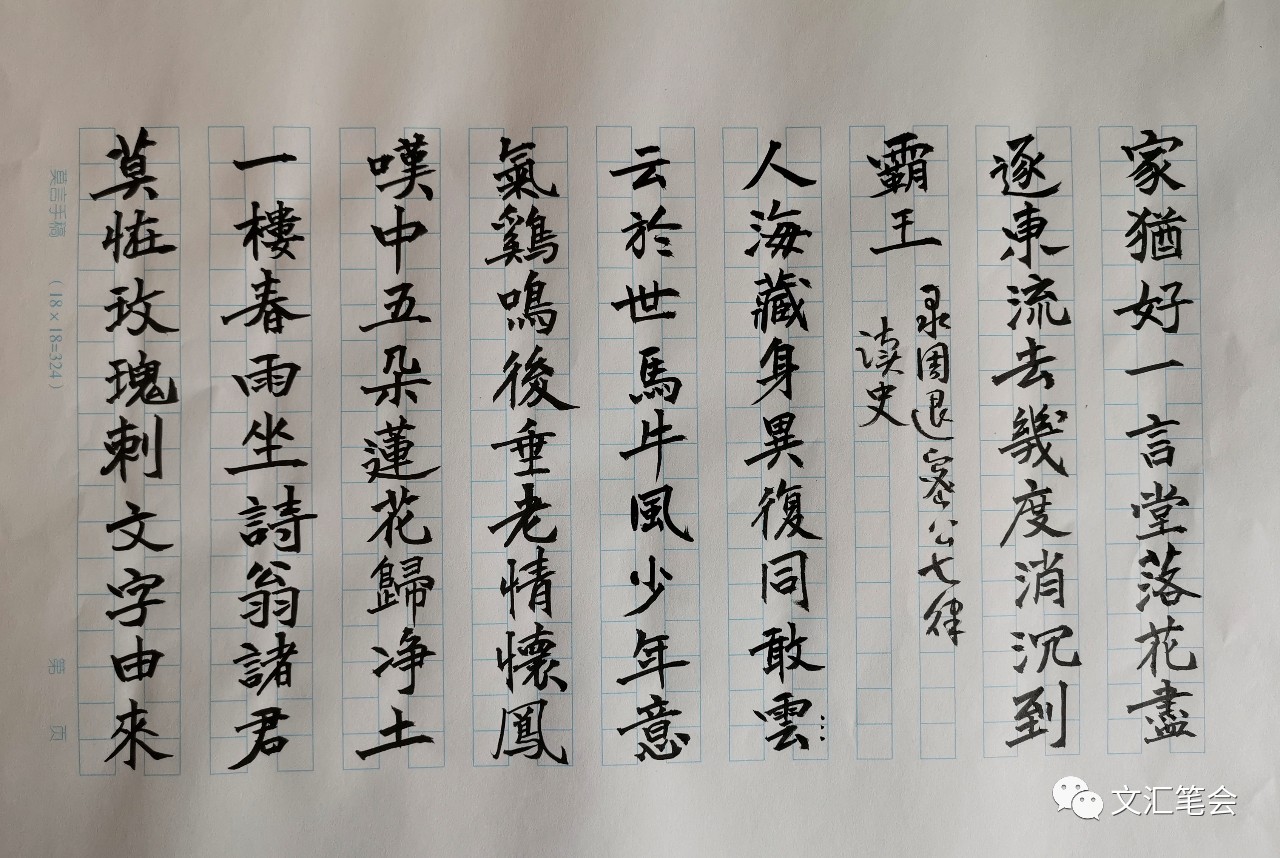 家猶好一言堂落花盡
逐東流去幾度消沉到
霸王
录周退密公七律
读史
人海藏身異復同敢雲
云於世馬牛風少年意
氣鷄鳴後垂老情懷鳳
嘆中五朵蓮花歸净土
一樓春雨坐詩翁諸君
莫恠玫瑰刺文字由來
莫言手稿 (18×18=324) 第 页
文汇笔会